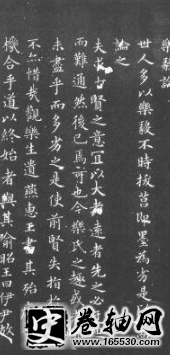 樂毅論
世人多以樂毅不時拔莒即墨為劣是
論之
夫求古賢之意宜以大者遠者先之必
而難通然後已焉可也今樂氏之趣或
未盡乎而多劣之是使前賢失指於
不亦惜哉觀樂生遺燕惠王書其殆
機合乎道以終始者與其喻昭王曰伊尹放
卷轴网
www.165530.com